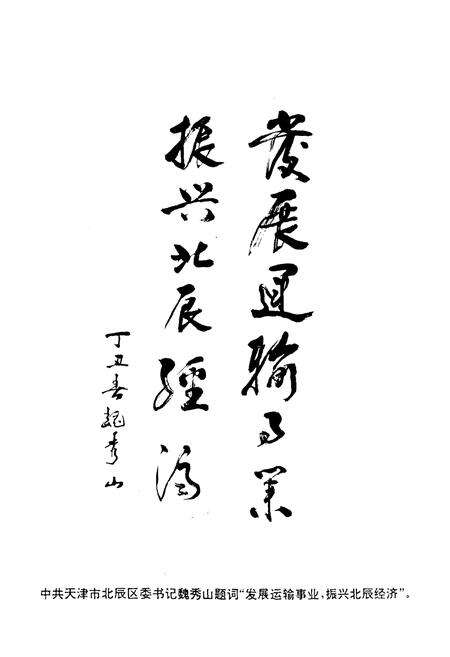 發展運輸事業
振兴北辰經济
丁丑春魏秀山
中共天津市北辰区委书记魏秀山题词“发展运输事业，振兴北辰经济”。